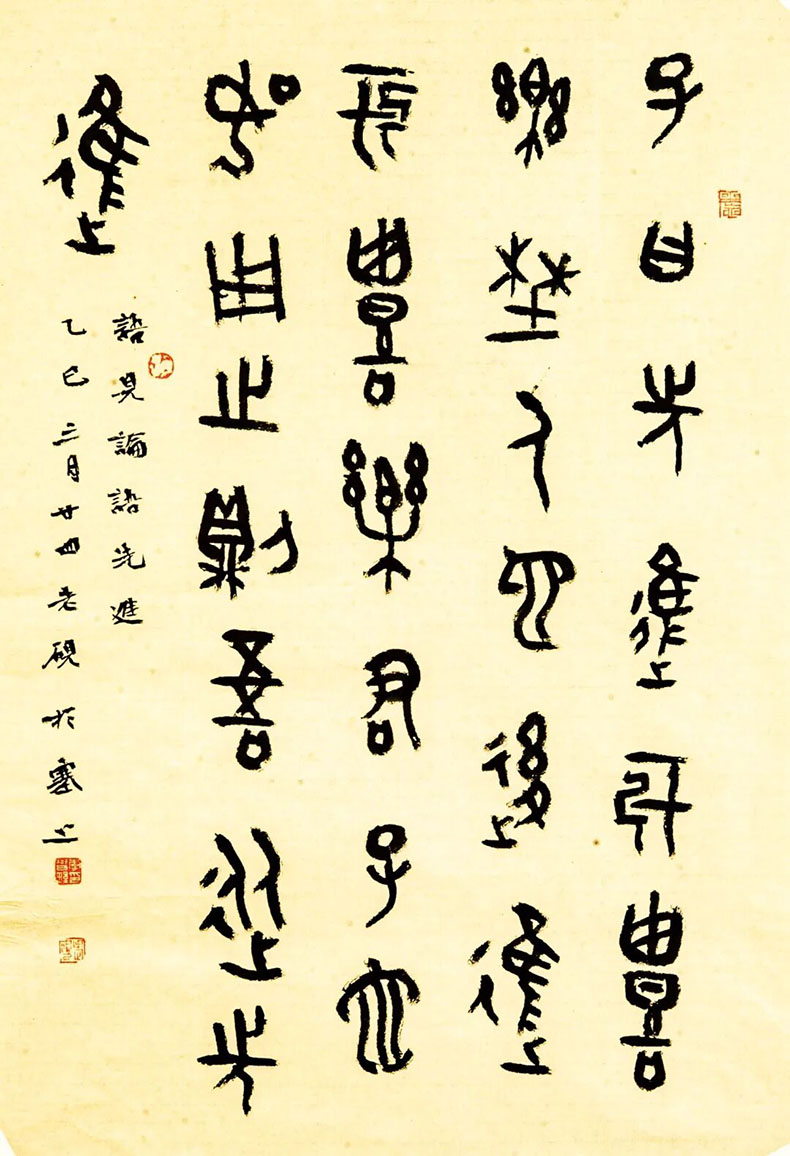 子曰先進於豊
樂埜人也後進
於豊樂君子也
如用之則吾從先
進
語見論語先進
乙巳三月廿四老硯於塞上